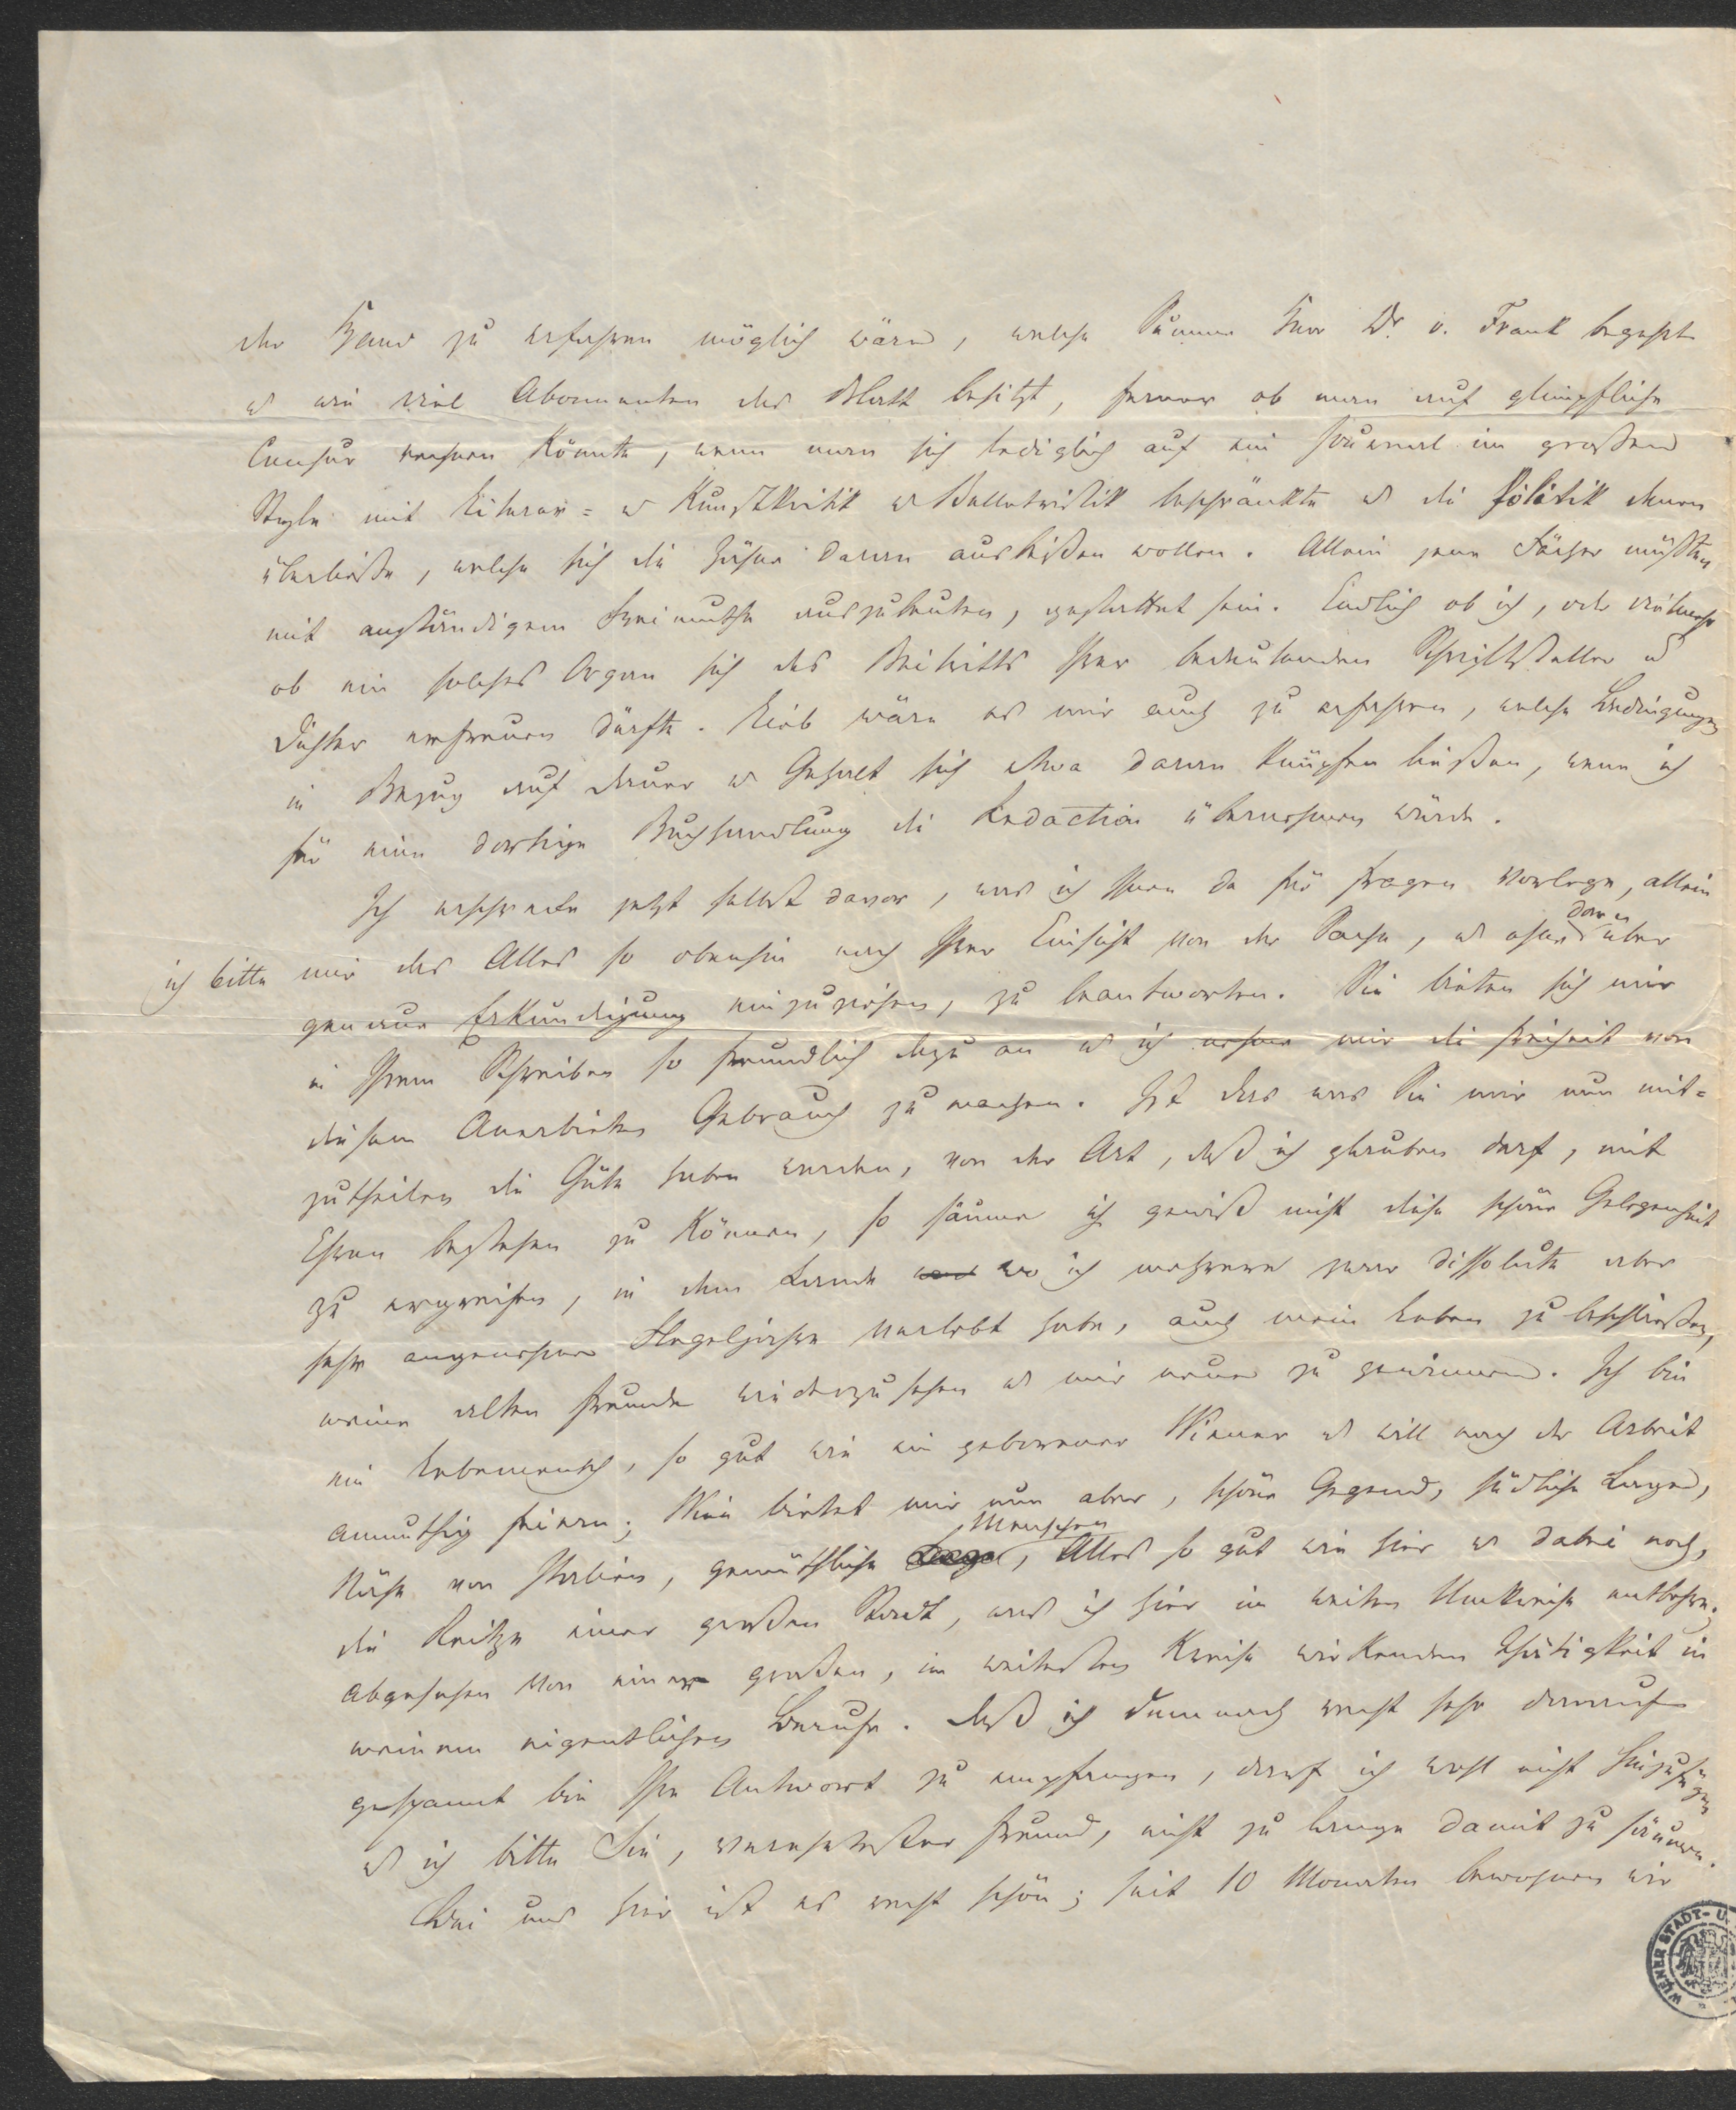 der Hand zu erfahren möglich wäre, welche Summe Herr Dr v. Frank begehrt
u wie viel Abonnenten das Blatt besitzt, ferner ob man auf glimpfliche
Censur rechnen könnte, wenn man sich lediglich auf ein Journal im großen
Style mit Literar= u Kunstkritik u Belletristik beschränkte u die Politik denen
überließe, welche sich die Zähne daran ausbeißen wollen. Allein jene Fächer müßten
mit anständigem Freimuthe auszubeuten, gestattet sein. Endlich ob ich, oder vielmehr
ob ein solches Organ sich des Beitritts Ihrer bedeutenden Schriftsteller u
Dichter erfreuen dürfte. Lieb wäre es mir auch zu erfahren, welche Bedingungen
in Bezug auf Dauer u Gehalt sich etwa daran knüpfen ließen, wenn ich
für eine dortige Buchhandlung die Redaction übernehmen würde.
Ich erschrecke jetzt selbst davor, was ich Ihnen da für Fragen vorlege, allein
ich bitte mir das Alles so obenhin nach Ihrer Einsicht von der Sache, u ohne darüber
genaue Erkundigung einzuziehen, zu beantworten. Sie bieten sich mir
in Ihrem Schreiben so freundlich dazu an u ich nehme mir die Freiheit von
diesem Anerbieten Gebrauch zu machen. Ist das was Sie mir nun mit=
zutheilen die Güte haben werden, von der Art, daß ich glauben darf, mit
Ehren bestehen zu können, so säume ich gewiß nicht diese schöne Gelegenheit
zu ergreifen, in dem Lande wo ich mehrere zwar dissolute aber
sehr angenehme Flegeljahre verlebt habe, auch mein Leben zu beschließen,
meine alten Freunde wiederzusehen u mir neue zu gewinnen. Ich bin
ein Lebemensch, so gut wie ein geborener Wiener u will nach der Arbeit
anmuthig feiern; Wien bietet mir nun aber, schöne Gegend, südliche Lage,
Nähe von Italien, gemüthliche Menschen, Alles so gut wie hier u dabei noch,
die Reitze einer großen Stadt, was ich hier im weiten Umkreise entbehre;
abgesehen von einer großen, im weitesten Kreise wirkenden Thätigkeit in
meinem eigentlichen Berufe. Daß ich demnach recht sehr darauf
gespannt bin Ihre Antwort zu empfangen, darf ich wohl nicht hinzufügen
u ich bitte Sie, verehrtester Freund, nicht zu lange damit zu säumen.
Bei uns hier ist es recht schön; seit 10 Monaten bewohnen wir
WIENER STADT- U.